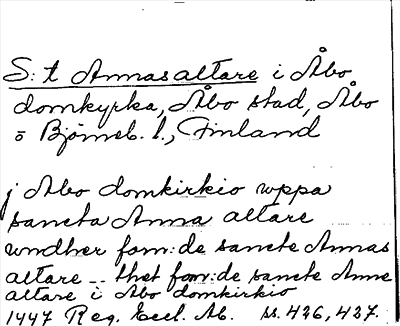 S:t Annas altare i Åbo
domkyrka, Åbo stad, Åbo
o Björneb. l., Finland
j Abo domkirkio vppa
sancta Anna altare
wndher forn:de sancte Annas
altare -- thet forn:de sancte Anne
altare i Abo domkirkio
1447 Reg. Eccl. Ab. ss. 426, 427.